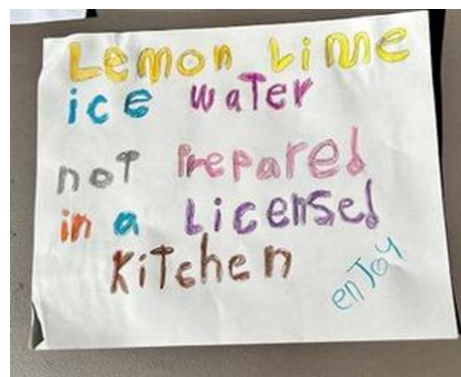 Lemon Lime
ice water
not Prepared
in a Licensed
Kitchen
enJoy